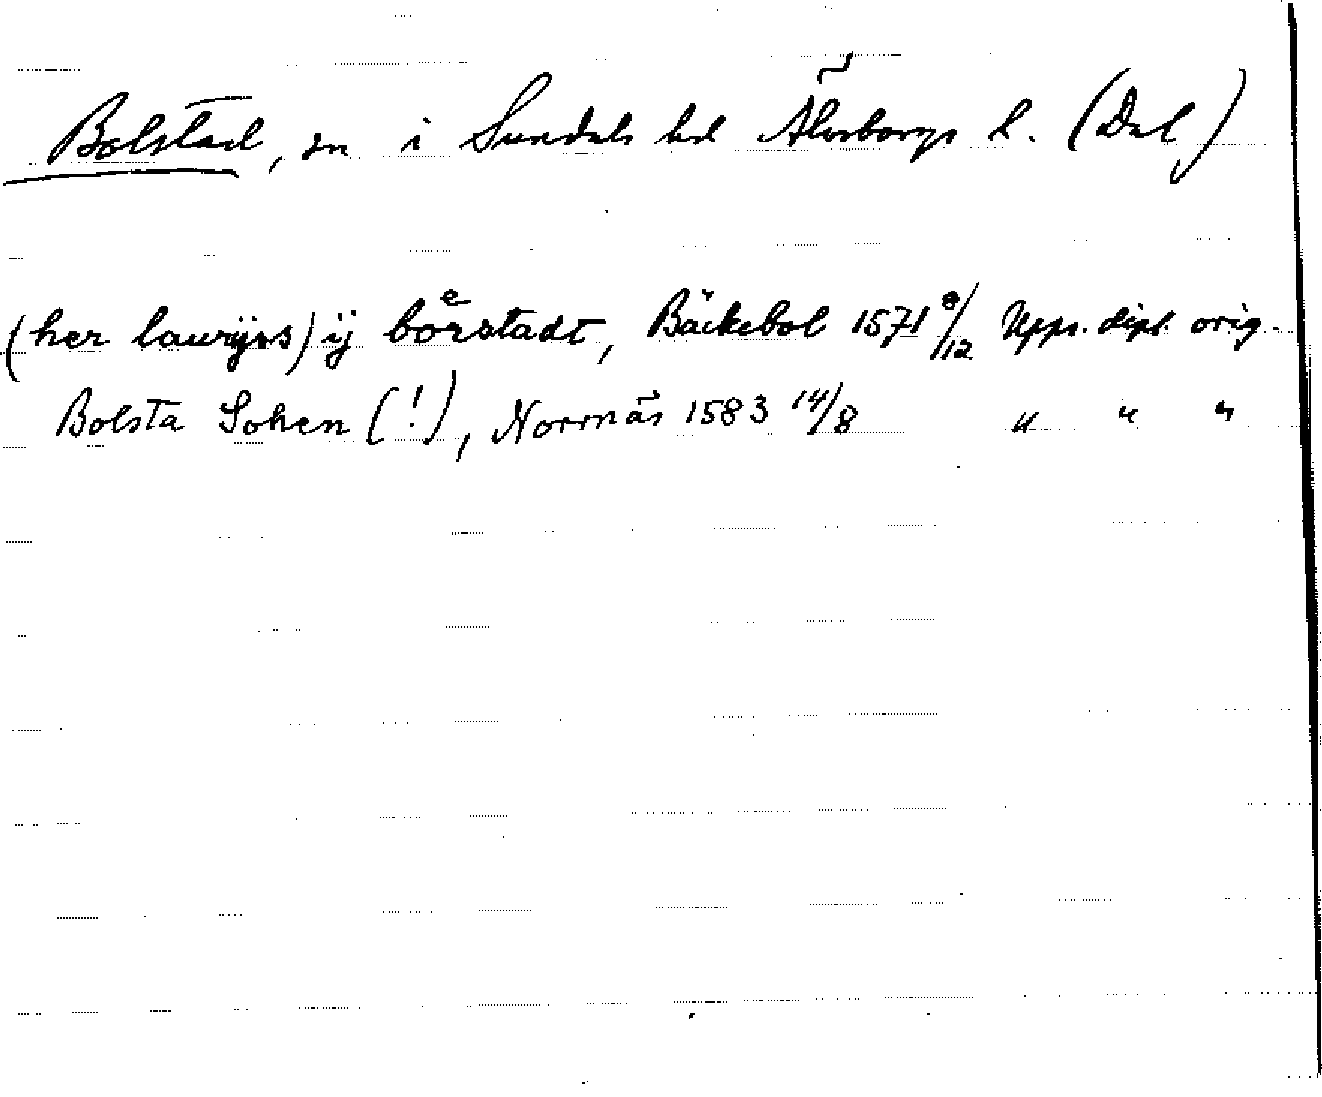 Bolstad, sn i Sundals hd Älvsborgs l. (Dal)
(her laurijs) ij boͤrstadt, Bäckebol 1571 8/12 Upps. dipl. orig.
Bolsta Sohen (!), Norrnäs 1583 14/8 " " "